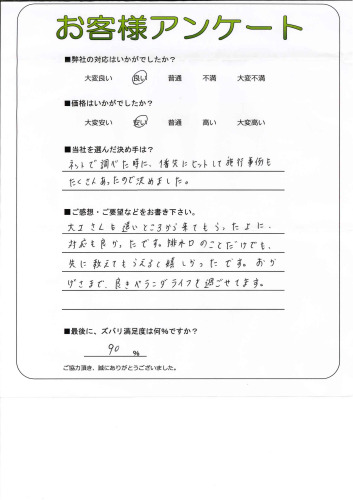 お客様アンケート
■弊社の対応はいかがでしたか?
大変良い 良い 普通 不満 大変不満
■価格はいかがでしたか?
大変安い 安い 普通 高い 大変高い
■当社を選んだ決め手は?
ネットで調べた時に、1番欠にヒットして施行事例も
たくさんあったので決めました。
■ご感想・ご要望などをお書き下さい。
大工さんも遠いところから来てもらったよに、
対応も良かったです。排水口のことだけでも、
先に教えてもらえると嬉しかったです。おか
げさまで、良きベランダライフを過ごせてます。
■最後に、ズバリ満足度は何%ですか?
90 %
ご協力頂き、誠にありがとうございました。